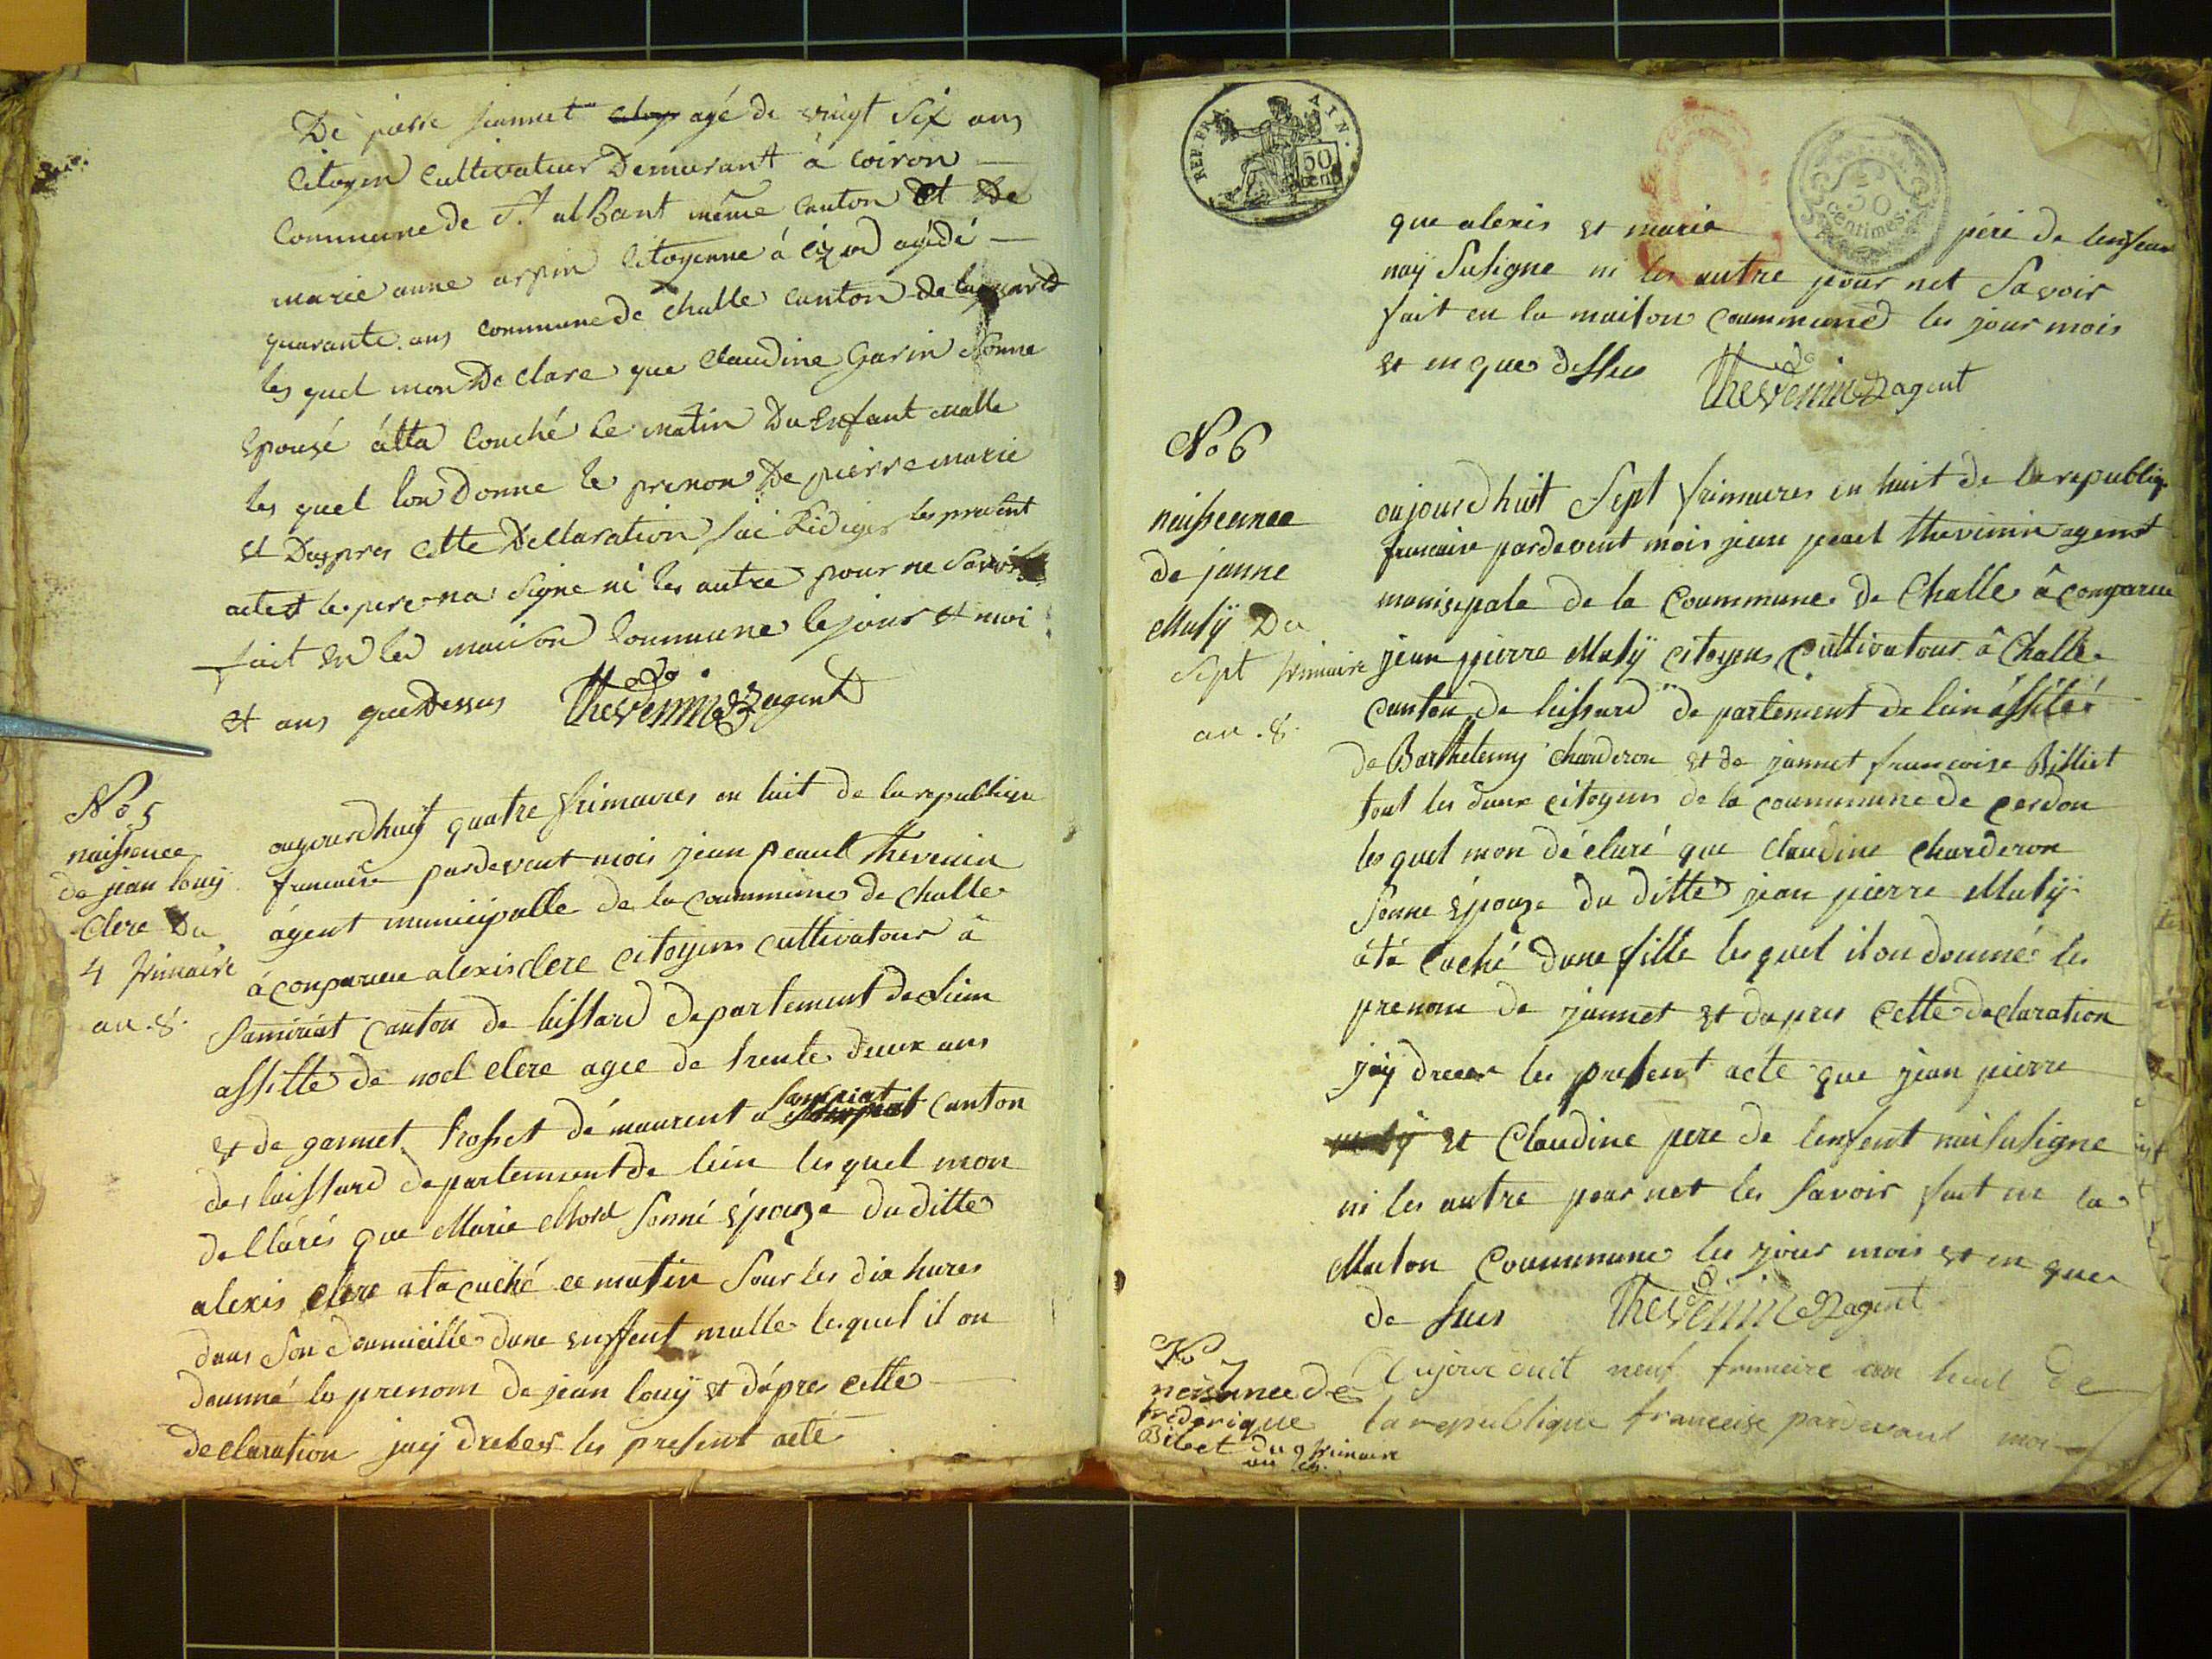 De pierre jeannet agé de vingt six ans
Citoyen Cultivateur Demurant à Coiron
Commune de St alBant même Canton et De
marie anne arpin Citoyenne á agédé
quarante ans commune de Challe Canton
les quel mon De Clare que Claudine Garin sonne
Epousé átta Couché le matin Du Enfant malle
les quel lon Donne le prenon De pierre marie
et Daspres Cette Decllaration Rediger les present
actest le pere na Signe ni les autre pour ne Savoir
fait en la maison Commune le jour et moi
et ans que Dessus Thevenin agent
No 5
naissence
de jean louÿ
Clere Du
4 frimaire
an .8.
aujourdhuy quatre frimaires en huit de la republique
francaise pardevent mois jean peaul thevenin
ágent municipalle de la Coummune de Challe
á Conparue alexis Clere Citoyens Cultivatour à
Samiriat Canton de luissard departement de Linn
assitte de noel Clere agee de trente deux ans
et de jannet trosset démaurent a Samriat Canton
des luissard departement de luin les quel mon
dellarés que Marie Morel Sonné épouzé du ditte
alexis Clere ata cuché ce matin sour les dix hures
dans Son doumicille dune enffent malle les quel il on
dounné les prenom de jean louÿ et dápres cette
declaration jaij dreser les present acte
REP. FRA. AIN.
50 Cent.
50 centimes.
que alexis et marie pére de lenfeant
naÿ Susigne ni les autre pour net Savoir
fait en la maison Coummune les jour mois
et en que dessus Thevenin agent
No 6
naissence
de janne
Matÿ Du
Sept frimaire
an .8.
aujourdhuit Sept frimaires en huit de la republiq
francaise pardevent mois jean peaul thevinin agent
monisipale de la Coummune de Challe â Conparue
jean pierre Matÿ Citoyens Cultivatour â Challe
Canton de luissard de partement de luin ássitée
de Barthelemy Charderon et de jannet francoise Billiet
tout les deux Citoyens de la Coummune de Cerdon
les quel mon déclaré que Claudine Charderon
Sonne époaze du ditte jean pierre Matÿ
átá Cuché dune fille les quel il on dounné les
prenom de jannet et dapres Cette declaration
jaÿ dreser les present acte que jean pierre
matÿ et Claudine pere de lenfent nai Susigne
ni les autre pour net les Savoir fait en la
Maison Coummune les jour mois et en que
de sus Thevenin agent
No 7
neissance de
frederique
Bilet du 9 frimaire
an 8.
Aujour duit neuf frimeire an huit De
la republique franceise pardevant moi